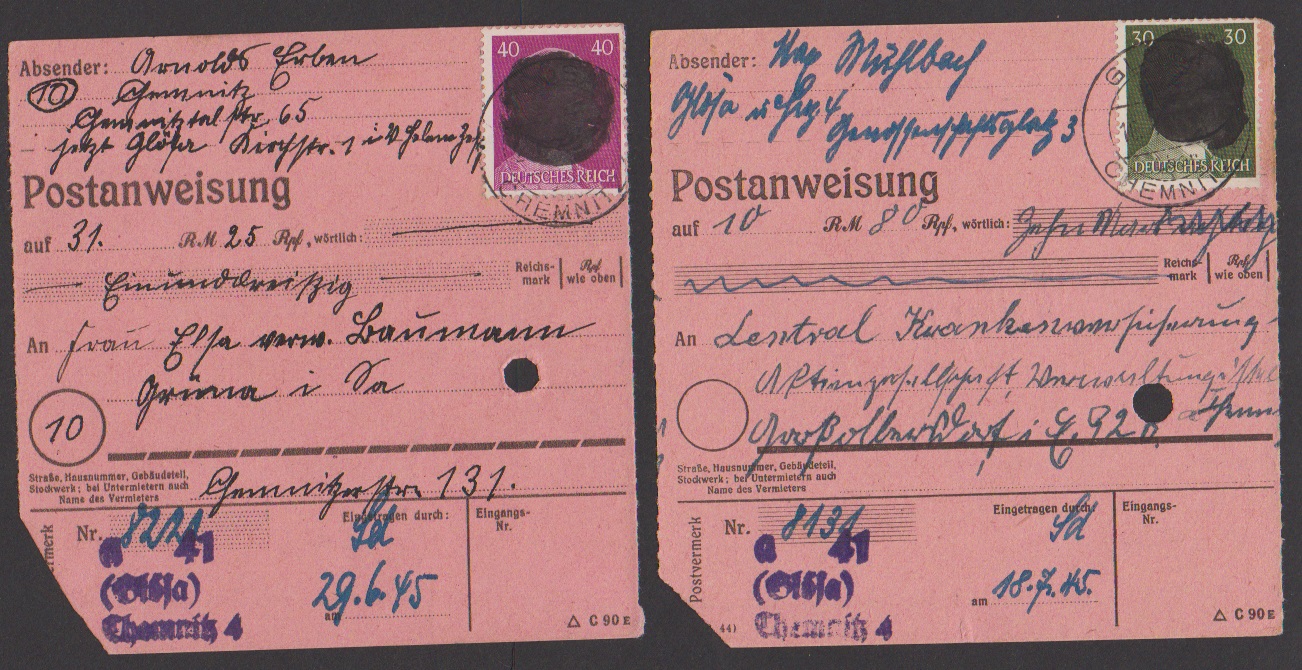 Absender: Arnolds Erben
10 Chemnitz
Chemnitztalstr. 65
jetzt Glösa Kirchstr. 1
40 40
DEUTSCHES REICH
CHEMNITZ
Postanweisung
auf 31. RM 25 Rpf, wörtlich:
Einunddreißig
Reichs-
mark
Rpf
wie oben
An Frau Elsa verw. Baumann
Grüna i Sa
10
Straße, Hausnummer, Gebäudeteil,
Stockwerk; bei Untermietern auch
Name des Vermieters
Chemnitzerstr. 131.
Nr. 8221
Eingetragen durch:
Sd
Eingangs-
Nr.
a 41
(Glösa)
Chemnitz 4
am 29.6.45
C 90 E
Absender: Max Mühlbach
Glösa
Genossenschaftsplatz 3
30 30
DEUTSCHES REICH
CHEMNITZ
Postanweisung
auf 10 RM 80 Rpf, wörtlich: Zehn Mark
Reichs-
mark
Rpf
wie oben
An Central Krankenversicherung
Aktiengesellschaft, Verwaltungsstel
Straße, Hausnummer, Gebäudeteil,
Stockwerk; bei Untermietern auch
Name des Vermieters
Postvermerk
Nr. 8131
Eingetragen durch:
Sd
Eingangs-
Nr.
a 41
(Glösa)
Chemnitz 4
am 18.7.45.
44)
C 90 E